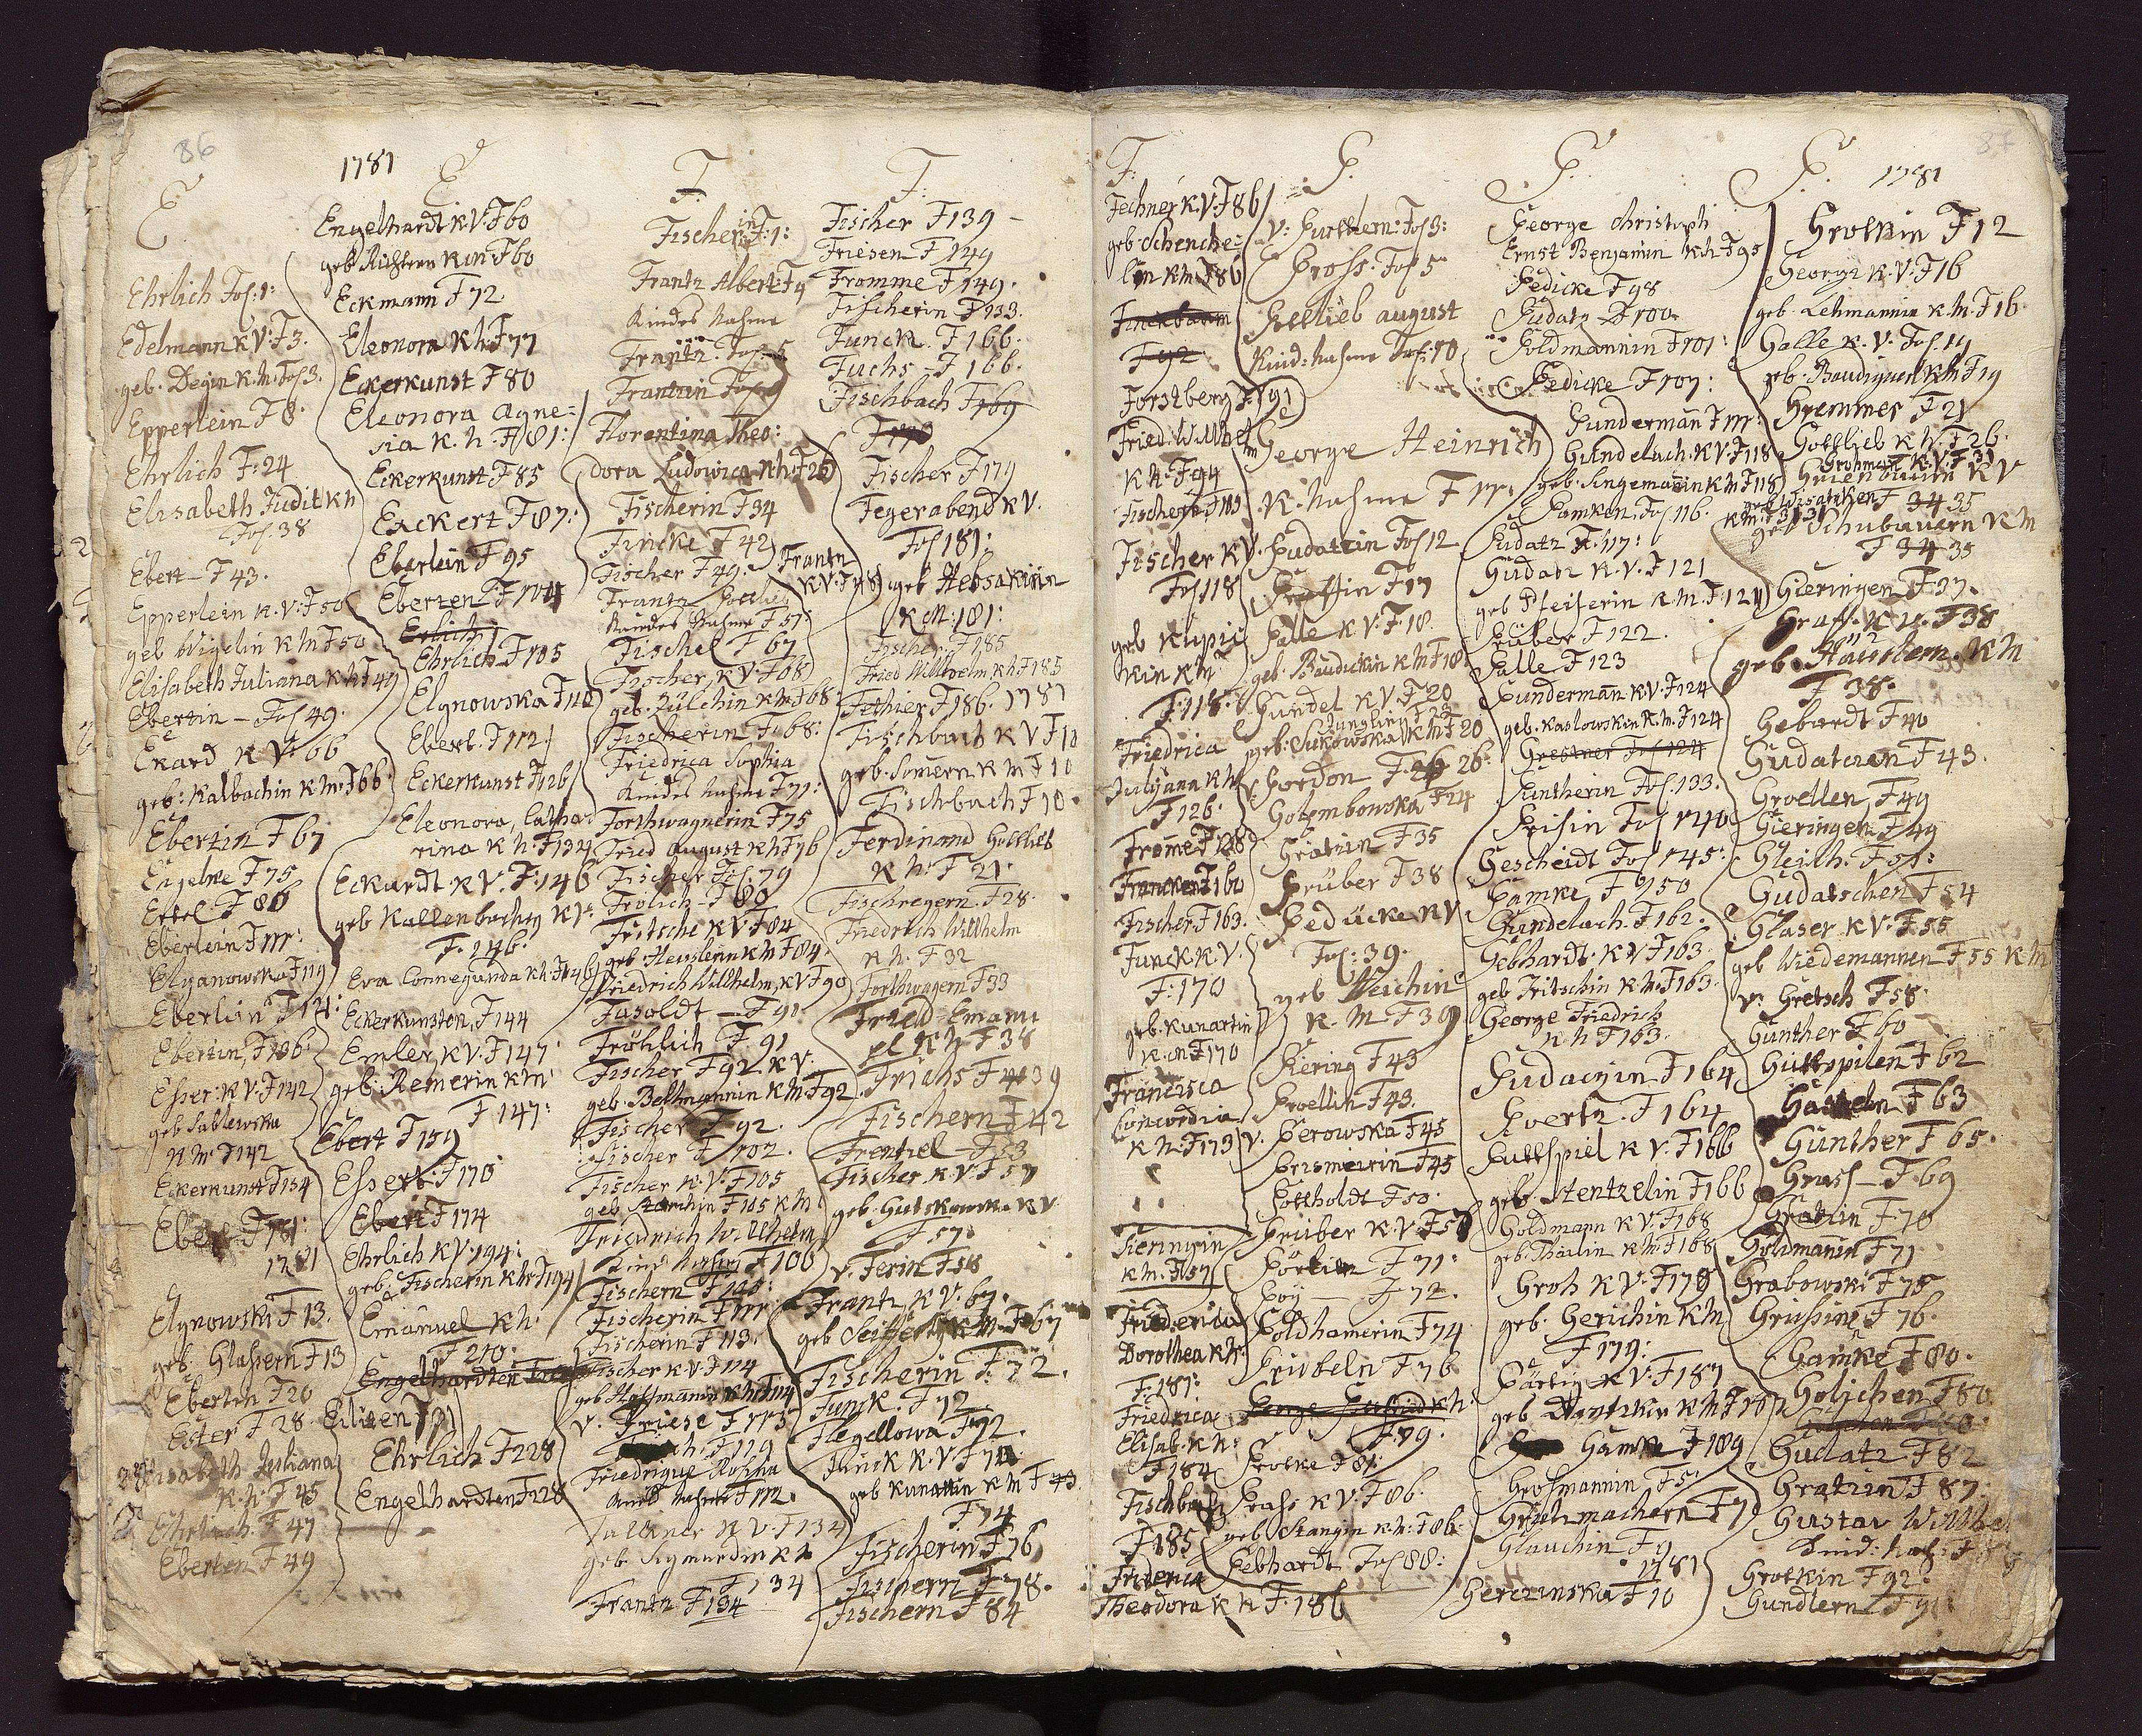 86
1781
E
Ehrlich Fos: 1:
Edelmann K V: F 3.
geb. Degin K. M. Fos 3.
Epperlein F 8.
Ehrlich F: 24
Elisabeth Judit K h
Fos. 38
Ebert - F 43.
Epperlein K. V: F 50
geb Wigelin K M F 50
Elisabeth Juliana K h F 49
Ebertin - Fos 49.
Ekard K V: 66
geb: Kalbachin K M: F 66
Ebertin F 67
Engelke F 75
Ertel F 86
Eberlein F 111:
Elganowska F 119
Eberlein F 14:
Ebertin, F 136
Esser: K V: F 142
geb Sablewska
K M F 142
Eckerkunst F 134
Ebert F 181:
1781
Elgnowski F 13.
geb. Glasern F 13
Ebertin F 20
Ester F 28
Elisabeth Juliana
K. h. F 45
Ehrlich F 47
Eberten F 49
E
Engelhardt K V: F 60
geb Richtern K M: F 60
Eckmann F 72
Eleonora K h F 77
Eckerkunst F 80
Eleonora Agne=
sia K. h. F 81:
Eckerkunst F 85
Exckert F 87:
Eberlein F 95
Eberzen F 104
Erlich
Ehrlich F 105
Elgnowska F 110
Ebert. F 112
Eckerkunst F 126
Eleonora, Cathar
rina K h: F 134
Eckardt K V: F: 146
geb Kallenbachen K V.
F. 146.
Eva Connegunda K h F 146
Eckerkunsten, F 144
Emler, K V: F 147
geb: Remerin K M
F 147:
Ebert F 159
Essert: F 170
Ebert F 174
Ehrlich K V: 194:
geb: Fischerin K M F 194
Emanuel K h.
F 210.
Engelhardten
Eilizen F 21
Ehrlich F 228
Engelhardten F 228
F.
Fischerin F: 1:
Frantz Albert: F 4
Kindes Nahme
Frantz. Fos: 5
Frantzin Fos
Florentina Theo:
dora Ludowica K h: F 26
Fischerin F 34
Fincke F 42
Fischer F 49.
Frantz
K V: F 48
Frantz Gottlieb
Kindes Nahme F 57:
Fischel F 67
Fischer, K V F 68
geb. Zülchin K M F 68
Fischerin F 68:
Friedrica Sophia
Kindes Nahme F 71:
Forthwagnerin F 75
Fried August K h F 76
Fischer Fos: 79
Frolich F 80
Fritsche K V F 84
geb Heuslerin K M F 84.
Friedrich Willhelm, K V F 90
Fasoldt - F 90
Fröhlich F 91
Fischer F 92 K V.
geb. Beltmannin K M. F 92
Fischer F 92.
Fischer F 102.
Fischer K. V. F 105
geb Storchin F 105 K M
Friedrich Willhelm
Kind Nahm F 106
Fischern F 106:
Fischerin F 111
Fischerin F 113.
Fischer K V F 114
geb Hoffmannin K M F 114
v. Friese F 115
F 119
Friedrique Rosina
Kind Nahm F 112.
Falkner K V. F 134
geb Sigmundin K M
F 134
Frantz F 134
F:
Fischer F 139 -
Friesen F 149
Fromme F 149.
Fischerin F 133.
Funck. F 166.
Fuchs - F 166.
Fischbach F 169
F 170
Fischer F 179
Fegerabend K V.
Fos 181:
geb Hebsakinn
K M: 181:
Fischer F 185
Fried Willhelm, K h F 185
Fethier F 186. 1781
Fischbach K V F 10
geb. Somern K M F 10
Fischbach F 10.
Ferdinand Gottlieb
K h: F 21.
Fischregern. F 28.
Friedrich Willhelm
K h. F 32
Forthwagern F 33
Fried Emanu
el K h F 38
Frichs F 39
Fischern F 42
Frentzel - F 53
Fischer K. V. F 57
geb. Gutskowska K V
F 57:
v. Ferin F 58
Frantz K V. 67.
geb Seifferth K M. F 67
Fischerin F. 72.
Funck. F 72
Flegellowa F 72.
Funck K. V. F 74
geb Kunattin K M F 43.
F. 74
Fischerin F 76
Fischern F 78.
Fischern F 84
87
F:
Fechner K V: F 86
geb. Schencke:
lin K M. F 86
Finckbaum
F 92
Forstberg F 91
Fried: Willhel
m
K h: F 94
Fischern F 103
Fischer K V.
Fos 118
geb Kupic
Kin K M
F 118.
Friedrica
Julyana K h
F 126.
Frome F 128
Francken F 160
Fischer. F 163.
Funck K V.
F: 170
geb. Kunartin
K. M F 170
Francisca
Concordia
K h: F 173
Fieringin
K M. F 57
Friederica
Dorothea K h.
F: 181:
Friedrica
Elisab. K h:
F 184
Fischbach
F 185
Friderica
Theodora K h F. 186
G.
v: Gurttern: Fos 3:
Gross. Fos 5
Gottlieb August
Kind: Nahme Fos: 10
George Heinrich
K. Nahme F 11.
Gudatzin Fos 12
Grattin F 17
Galle K V. F 18.
geb. Baudickin K M F 18
Gundel K V. F 20
Junglin F 28
geb: Sukowska K M F 20
Gordon F. 26.
Golembowska F 24
Gratzin F 35
Grüber F 38
Gedücke K V
Fos: 39.
geb Weichin
K. M F 39
Giering F 43
Groellin F 43.
v. Gerowska F 45
Grismeirin F 45
Gottholdt F 50.
Gruber K. V. F 57
F 71:
Goy - F 72.
Goldhamerin F 74
Griebeln F 76
George Gottfried K h:
F 79.
Grotke F 81:
Grass K V: F 86.
geb Stangin K. M: F 86.
Gebhardt Fos 88:
G.
George Christoph
Ernst Benjamin K h F 95
Gedicke F 98
Gudatz F 100.
Goldmannin F 101:
Gedicke F 107:
Gundermañ F 111:
Gundelach. K V: F 118
geb. Singemañin K M F 118
Gamken, Fos 116.
Gudatz F. 117:
Gudatz K. V. F 121
geb Pfeiferin K. M. F 121
Grüber F 122.
Galle F 123
Gundermañ K V: F 124
geb. Kaslowskin K. M. F 124
Grestner Fos 124
Guntherin Fos. 133.
Grisin Fos 140
Gescheidt Fos 145:
Gamke F 150
Gundelach. F 162.
Gebhardt. K V F 163.
geb Fritschin K. M. F 163.
George Friedrich
K h F 163.
Gudatzin F 164
Gvertz. F 164
Guttspiel K V: F 166
geb. Stentzelin F 166
Goldmann K V: F 168
geb: Thaisin K M: F 168
Groh K V: F 179
geb. Gerichin K M
F 179:
Gärtig K V: F 187
geb K M F 187
Gamke F 189
Grossmannin F 5
Grützmachern F 7
Glauchin F 9
1781
Gerczinska F 10
G. 1781
Grotkin F 12
George K. V: F 16
geb. Lehmannin K. M. F 16.
Galle K. V. Fos. 19
geb. Baudiquen K M F 19
Gremmer F 21
Gottlieb K h. F 26.
Grohmañ K. V. F 31
Gulenbauern K V
F 34 35
geb Schubauern K M
F 34 35
Gieringen F 37.
Graff. K V. F 38
geb. K M
F 38.
Gebardt F 40
Gudatczen F 43.
Groellen, F 49
Gieringen F 49
Gleich. F 51:
Gudatschen F 54
Glaser K V: F 55
geb Wiedemannen F 55 K M
v. Gretsch F 58.
Gunther F 60
Guttspilen F 62
F 63
Günther F 65.
Grass - F 69
Gratzin F 70
Goldmañin F 71
Grabowski F 75
Grusin F 76.
Gamke F 80.
Golichen F 80
Gudatz F 82
Gratzin F 87.
Gustav Willhel
Kind: Nah: F
Grotkin F 92.
Gundlern F 91